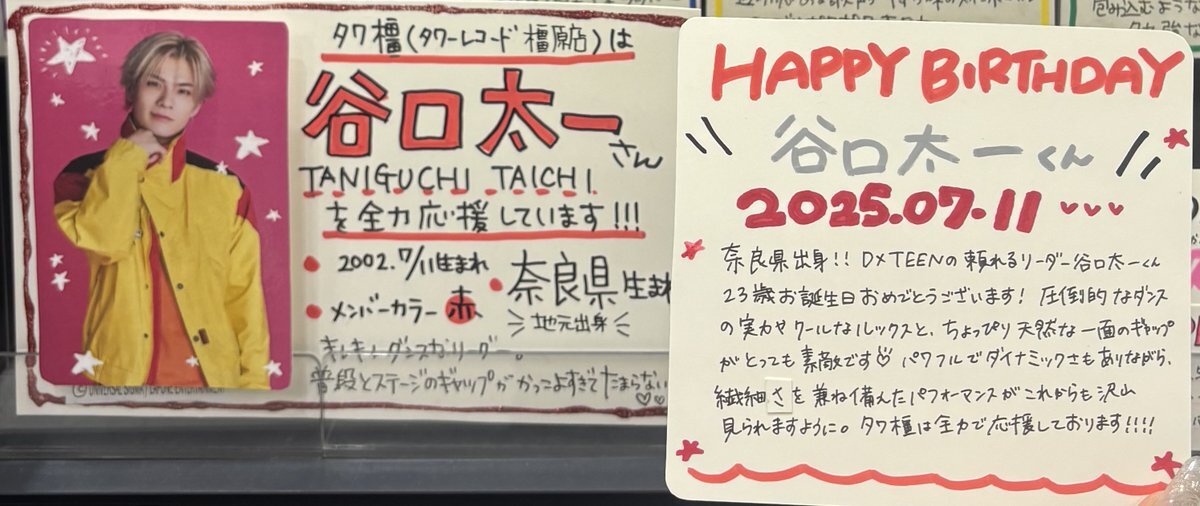 タワ橿(タワーレコード橿原店)は
谷口太一さん
TANIGUCHI TAICHI
を全力応援しています!!!
2002.7/11生まれ
奈良県生まれ
メンバーカラー 赤
地元出身
キレキレダンスなリーダー。
普段とステージのギャップがかっこよすぎてたまらない♡♡
HAPPY BIRTHDAY
谷口太一くん
2025.07.11
奈良県出身!! DXTEENの頼れるリーダー谷口太一くん
23歳お誕生日おめでとうございます! 圧倒的なダンス
の実力やクールなルックスと、ちょっぴり天然な一面のギャップ
がとっても素敵です♡ パワフルでダイナミックさもありながら、
繊細さを兼ね備えたパフォーマンスがこれからも沢山
見られますように。タワ橿は全力で応援しております!!!!
包み込むような